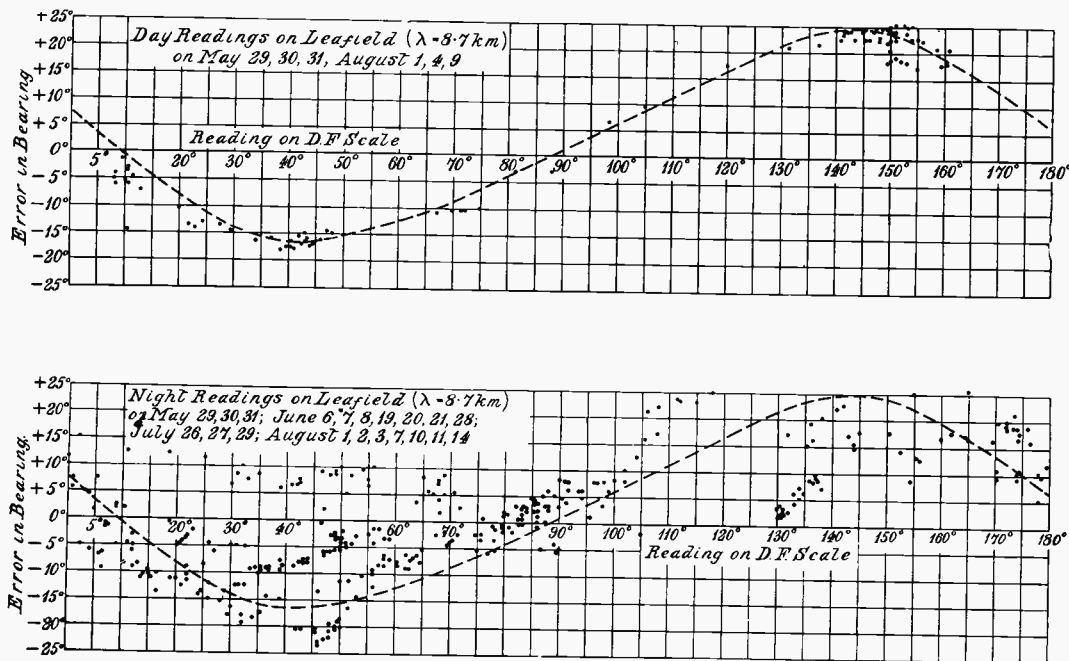 +25°
+20°
+15°
+10°
+5°
0°
-5°
-10°
-15°
-20°
-25°
Error in Bearing
Day Readings on Leafield (λ=8·7km)
on May 29, 30, 31, August 1, 4, 9
Reading on D.F. Scale
5° 20° 30° 40° 50° 60° 70° 80° 90° 100° 110° 120° 130° 140° 150° 160° 170° 180°
+25°
+20°
+15°
+10°
+5°
0°
-5°
-10°
-15°
-20°
-25°
Error in Bearing.
Night Readings on Leafield (λ=8·7km)
on May 29,30,31; June 6, 7, 8, 19, 20, 21, 28;
July 26, 27, 29; August 1, 2, 3, 7, 10, 11, 14
5° 20° 30° 40° 50° 60° 70° 80° 90° 100° 110° 120° 130° 140° 150° 160° 170° 180°
Reading on D.F. Scale